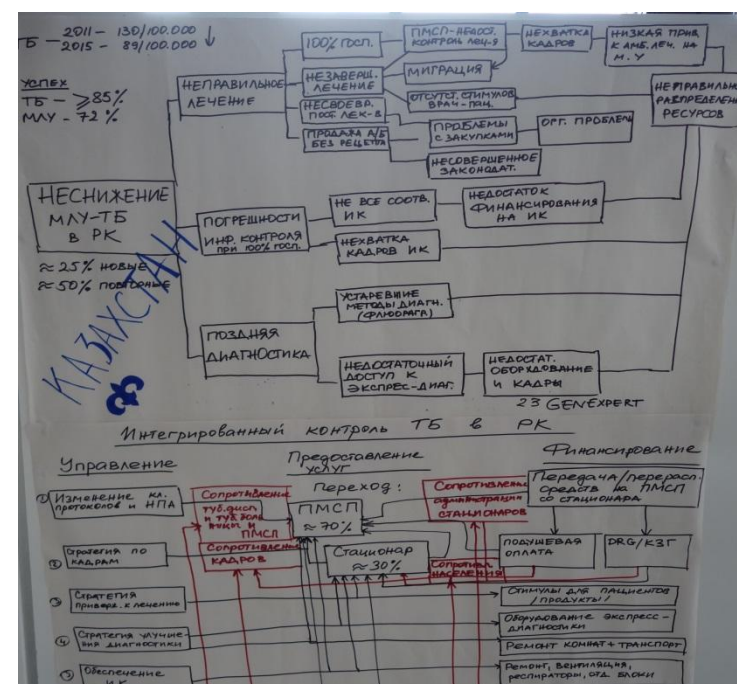 ТБ — 2011 — 130/100.000 ↓
2015 — 89/100.000
УСПЕХ
ТБ — ≥85%
МЛУ - 72%
НЕПРАВИЛЬНОЕ
ЛЕЧЕНИЕ
100% госп.
НЕЗАВЕРШ.
ЛЕЧЕНИЕ
НЕСВОЕВР.
ПОСТ. ЛЕК-В
ПРОДАЖА А/Б
БЕЗ РЕЦЕПТА
ПМСП-НЕДОСТ.
КОНТРОЛЬ ЛЕЧ-Я
МИГРАЦИЯ
ОТСУТСТ. СТИМУЛОВ
ВРАЧ-ПАЦ.
ПРОБЛЕМЫ
С ЗАКУПКАМИ
НЕСОВЕРШЕННОЕ
ЗАКОНОДАТ.
НЕХВАТКА
КАДРОВ
ОРГ. ПРОБЛЕМ
НИЗКАЯ ПРИВ.
К АМБ. ЛЕЧ. НА
М.У
НЕПРАВИЛЬНО
РАСПРЕДЕЛЕНИ
РЕСУРСОВ
НЕСНИЖЕНИЕ
МЛУ-ТБ
В РК
≈ 25% новые
≈ 50% повторные
КАЗАХСТАН
ПОГРЕШНОСТИ
ИНФ. КОНТРОЛЯ
при 100% госп.
НЕ ВСЕ СООТВ.
ИК
НЕДОСТАТОК
ФИНАНСИРОВАНИЯ
НА ИК
НЕХВАТКА
КАДРОВ ИК
ПОЗДНЯЯ
ДИАГНОСТИКА
УСТАРЕВШИЕ
МЕТОДЫ ДИАГН.
НЕДОСТАТОЧНЫЙ
ДОСТУП К
ЭКСПРЕС-ДИАГ.
НЕДОСТАТ.
ОБОРУДОВАНИЕ
И КАДРЫ
23 GENEXPERT
Интегрированный контроль ТБ в РК
Управление
Предоставление
услуг
Финансирование
① Изменение кл.
протоколов и НПА
② Стратегия по
кадрам
③ Стратегия
приверж. к лечению
④ Стратегия улучше-
ния диагностики
⑤ Обеспечение
ИК
Сопротивление
туб. дисп
ПМСП
Сопротивление
КАДРОВ
Переход:
ПМСП
≈70%
Стационар
≈30%
Сопротивлени
администрации
СТАЦИОНАРОВ
Сопротивл.
НАСЕЛЕНИЯ
Передача/перерасп.
средств на ПМСП
со стационара
ПОДУШЕВАЯ
ОПЛАТА
DRG/КЗГ
Стимулы для пациентов
/продукты/
Оборудование экспресс-
диагностики
Ремонт комнат + транспорт
Ремонт, вентиляция,
респираторы, отд. блоки